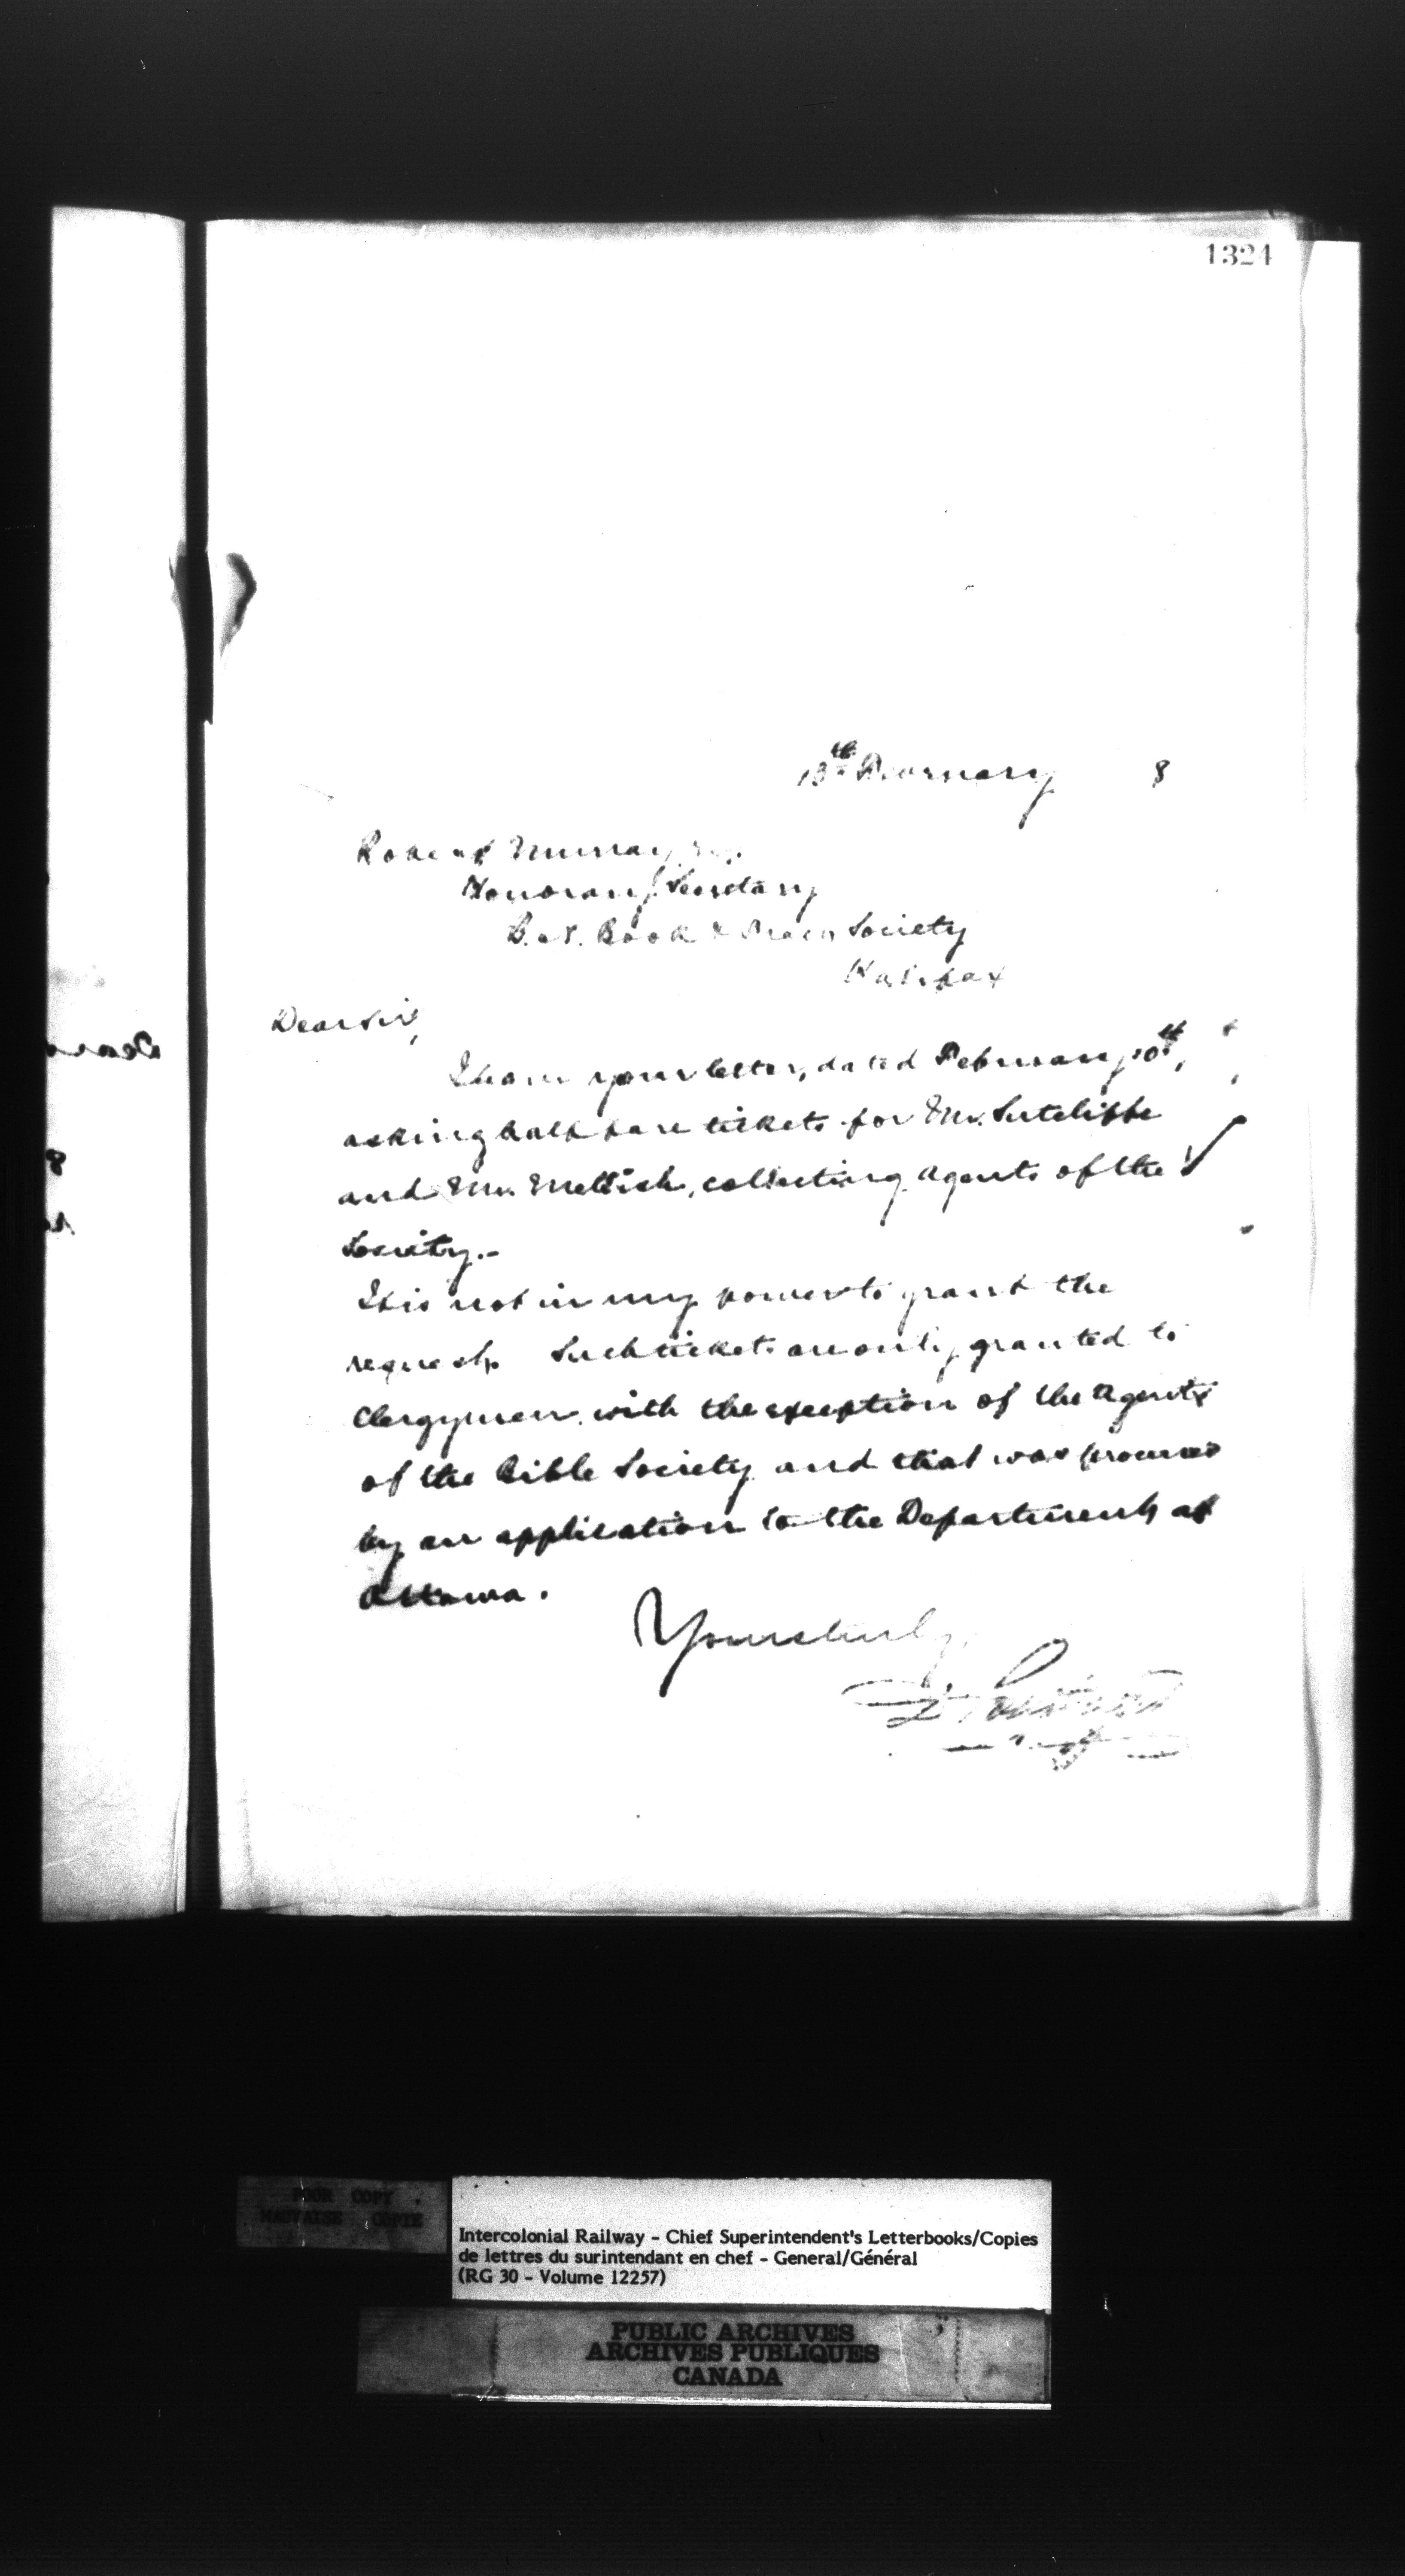 1324
13th February 8
Robert Murray Esq.
Honorary Secretary
B. A. Book & Tract Society
Halifax
Dear Sir,
I have your letter, dated February 10th,
asking half fare tickets for Mr. Sutcliffe
and Mr. Mellish, collecting agents of the
Society.-
It is not in my power to grant the
request. Such tickets are only granted to
Clergymen with the exception of the Agents
of the Bible Society and that was procured
by an application to the Department at
Ottawa.
Yours truly,
POOR COPY
MAUVAISE COPIE
Intercolonial Railway - Chief Superintendent's Letterbooks/Copies
de lettres du surintendant en chef - General/Général
(RG 30 - Volume 12257)
PUBLIC ARCHIVES
ARCHIVES PUBLIQUES
CANADA